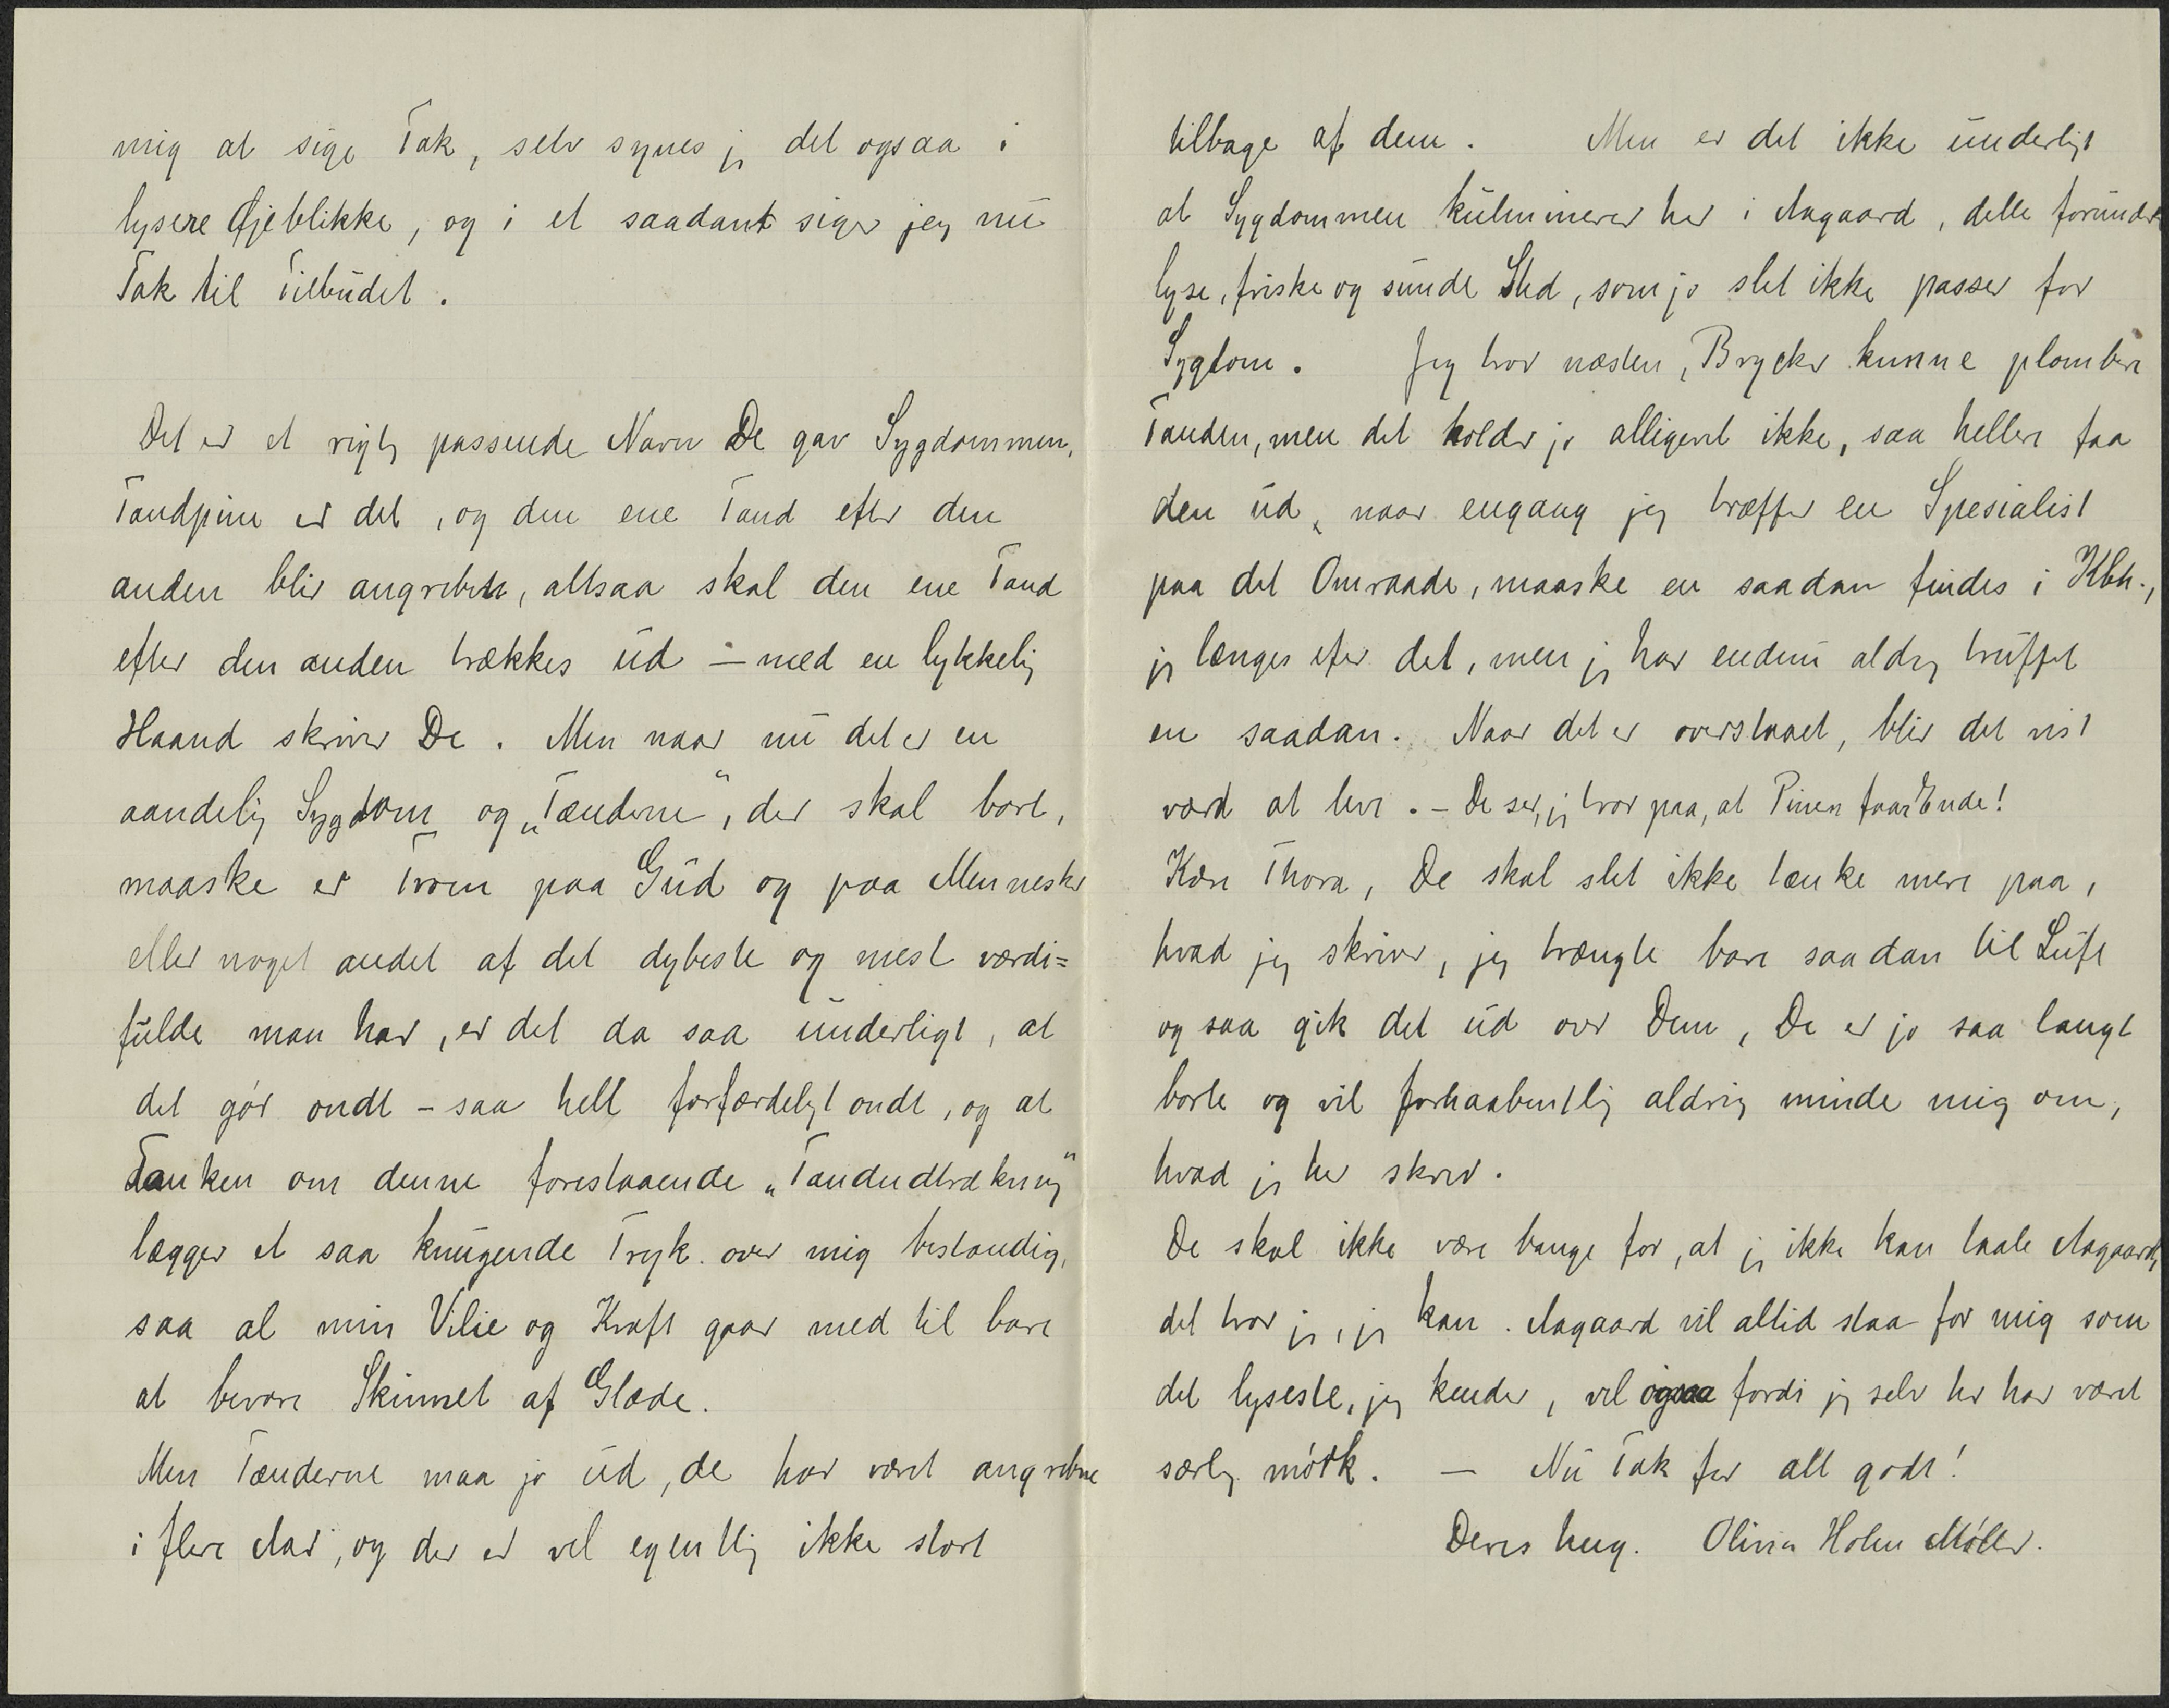 mig at sige Tak, selv synes jg det ogsaa i
lysere Øjeblikke, og i et saadant siger jeg nu
Tak til Tilbudet.
Det er et rigtg passende Navn De gav Sygdommen,
Tandpine er det, og den ene Tand efter den
anden blir angreben, altsaa skal den ene Tand
efter den anden trækkes ud – med en lykkelig
Haand skriver De. Men naar nu det er en
aandelig Sygdom og „Tænderne“, der skal bort,
maaske er Troen paa Gud og paa Mennesker
eller noget andet af det dybeste og mest værdi=
fulde man har, er det da saa underligt, at
det gør ondt – saa helt forfærdeligt ondt, og at
Tanken om denne forestaaende „Tandudtrækning“
lægger et saa knugende Tryk over mig bestandig,
saa al min Vilie og Kraft gaar med til bare
at bevare Skinnet af Glæde.
Men Tænderne maa jo ud, de har været angrebne
i flere Aar, og der er vel egentlig ikke stort
tilbage af dem. Men er det ikke underligt
at Sygdommen kulminerer her i Aagaard, dette forunderlig
lyse, friske og sunde Sted, som jo slet ikke passer for
Sygdom. Jeg tror næsten, Brycker kunne plombere
Tanden, men det holder jo alligevel ikke, saa hellere faa
den ud, naar engang jeg træffer en Spesialist
paa det Omraade, maaske en saadan findes i Kbh.,
jg længes efter det, men jg har endnu aldrg truffet
en saadan. Naar det er overstaaet, blir det vist
værd at leve. – De ser, jg tror paa, at Pinen faar Ende!
Kære Thora, De skal slet ikke tænke mere paa,
hvad jeg skriver, jeg trængte bare saadan til Luft
og saa gik det ud over Dem, De er jo saa langt
borte og vil forhaabentlig aldrig minde mig om,
hvad jg her skrev.
De skal ikke være bange for, at jg ikke kan taale Aagaard,
det tror jg, jg kan. Aagaard vil altid staa for mig som
det lyseste, jeg kender, vel ogsaa fordi jg selv her har været
særlg mørk. – Nu Tak for alt godt!
Deres heng. Olivia Holm Møller.